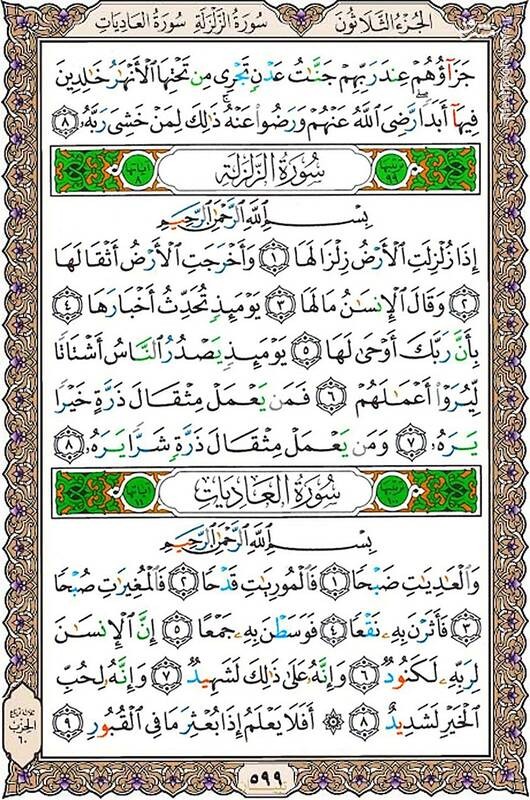 الجزء الثلاثون
سورة الزلزلة سورة العاديات
جَزَآؤُهُمْ عِندَ رَبِّهِمْ جَنَّٰتُ عَدْنٍ تَجْرِى مِن تَحْتِهَا ٱلْأَنْهَٰرُ خَٰلِدِينَ
فِيهَآ أَبَدًا ۖ رَّضِىَ ٱللَّهُ عَنْهُمْ وَرَضُوا۟ عَنْهُ ۚ ذَٰلِكَ لِمَنْ خَشِىَ رَبَّهُۥ ٨
سُورَةُ الزَّلْزَلَةِ
بِسْمِ ٱللَّهِ ٱلرَّحْمَٰنِ ٱلرَّحِيمِ
إِذَا زُلْزِلَتِ ٱلْأَرْضُ زِلْزَالَهَا ١ وَأَخْرَجَتِ ٱلْأَرْضُ أَثْقَالَهَا
٢ وَقَالَ ٱلْإِنسَٰنُ مَا لَهَا ٣ يَوْمَئِذٍ تُحَدِّثُ أَخْبَارَهَا ٤
بِأَنَّ رَبَّكَ أَوْحَىٰ لَهَا ٥ يَوْمَئِذٍ يَصْدُرُ ٱلنَّاسُ أَشْتَاتًا
لِّيُرَوْا۟ أَعْمَٰلَهُمْ ٦ فَمَن يَعْمَلْ مِثْقَالَ ذَرَّةٍ خَيْرًا
يَرَهُۥ ٧ وَمَن يَعْمَلْ مِثْقَالَ ذَرَّةٍ شَرًّا يَرَهُۥ ٨
سُورَةُ الْعَادِيَاتِ
بِسْمِ ٱللَّهِ ٱلرَّحْمَٰنِ ٱلرَّحِيمِ
وَٱلْعَٰدِيَٰتِ ضَبْحًا ١ فَٱلْمُورِيَٰتِ قَدْحًا ٢ فَٱلْمُغِيرَٰتِ صُبْحًا
٣ فَأَثَرْنَ بِهِۦ نَقْعًا ٤ فَوَسَطْنَ بِهِۦ جَمْعًا ٥ إِنَّ ٱلْإِنسَٰنَ
لِرَبِّهِۦ لَكَنُودٌ ٦ وَإِنَّهُۥ عَلَىٰ ذَٰلِكَ لَشَهِيدٌ ٧ وَإِنَّهُۥ لِحُبِّ
ٱلْخَيْرِ لَشَدِيدٌ ٨ ۞ أَفَلَا يَعْلَمُ إِذَا بُعْثِرَ مَا فِى ٱلْقُبُورِ ٩
الحزب
٦٠
٥٩٩